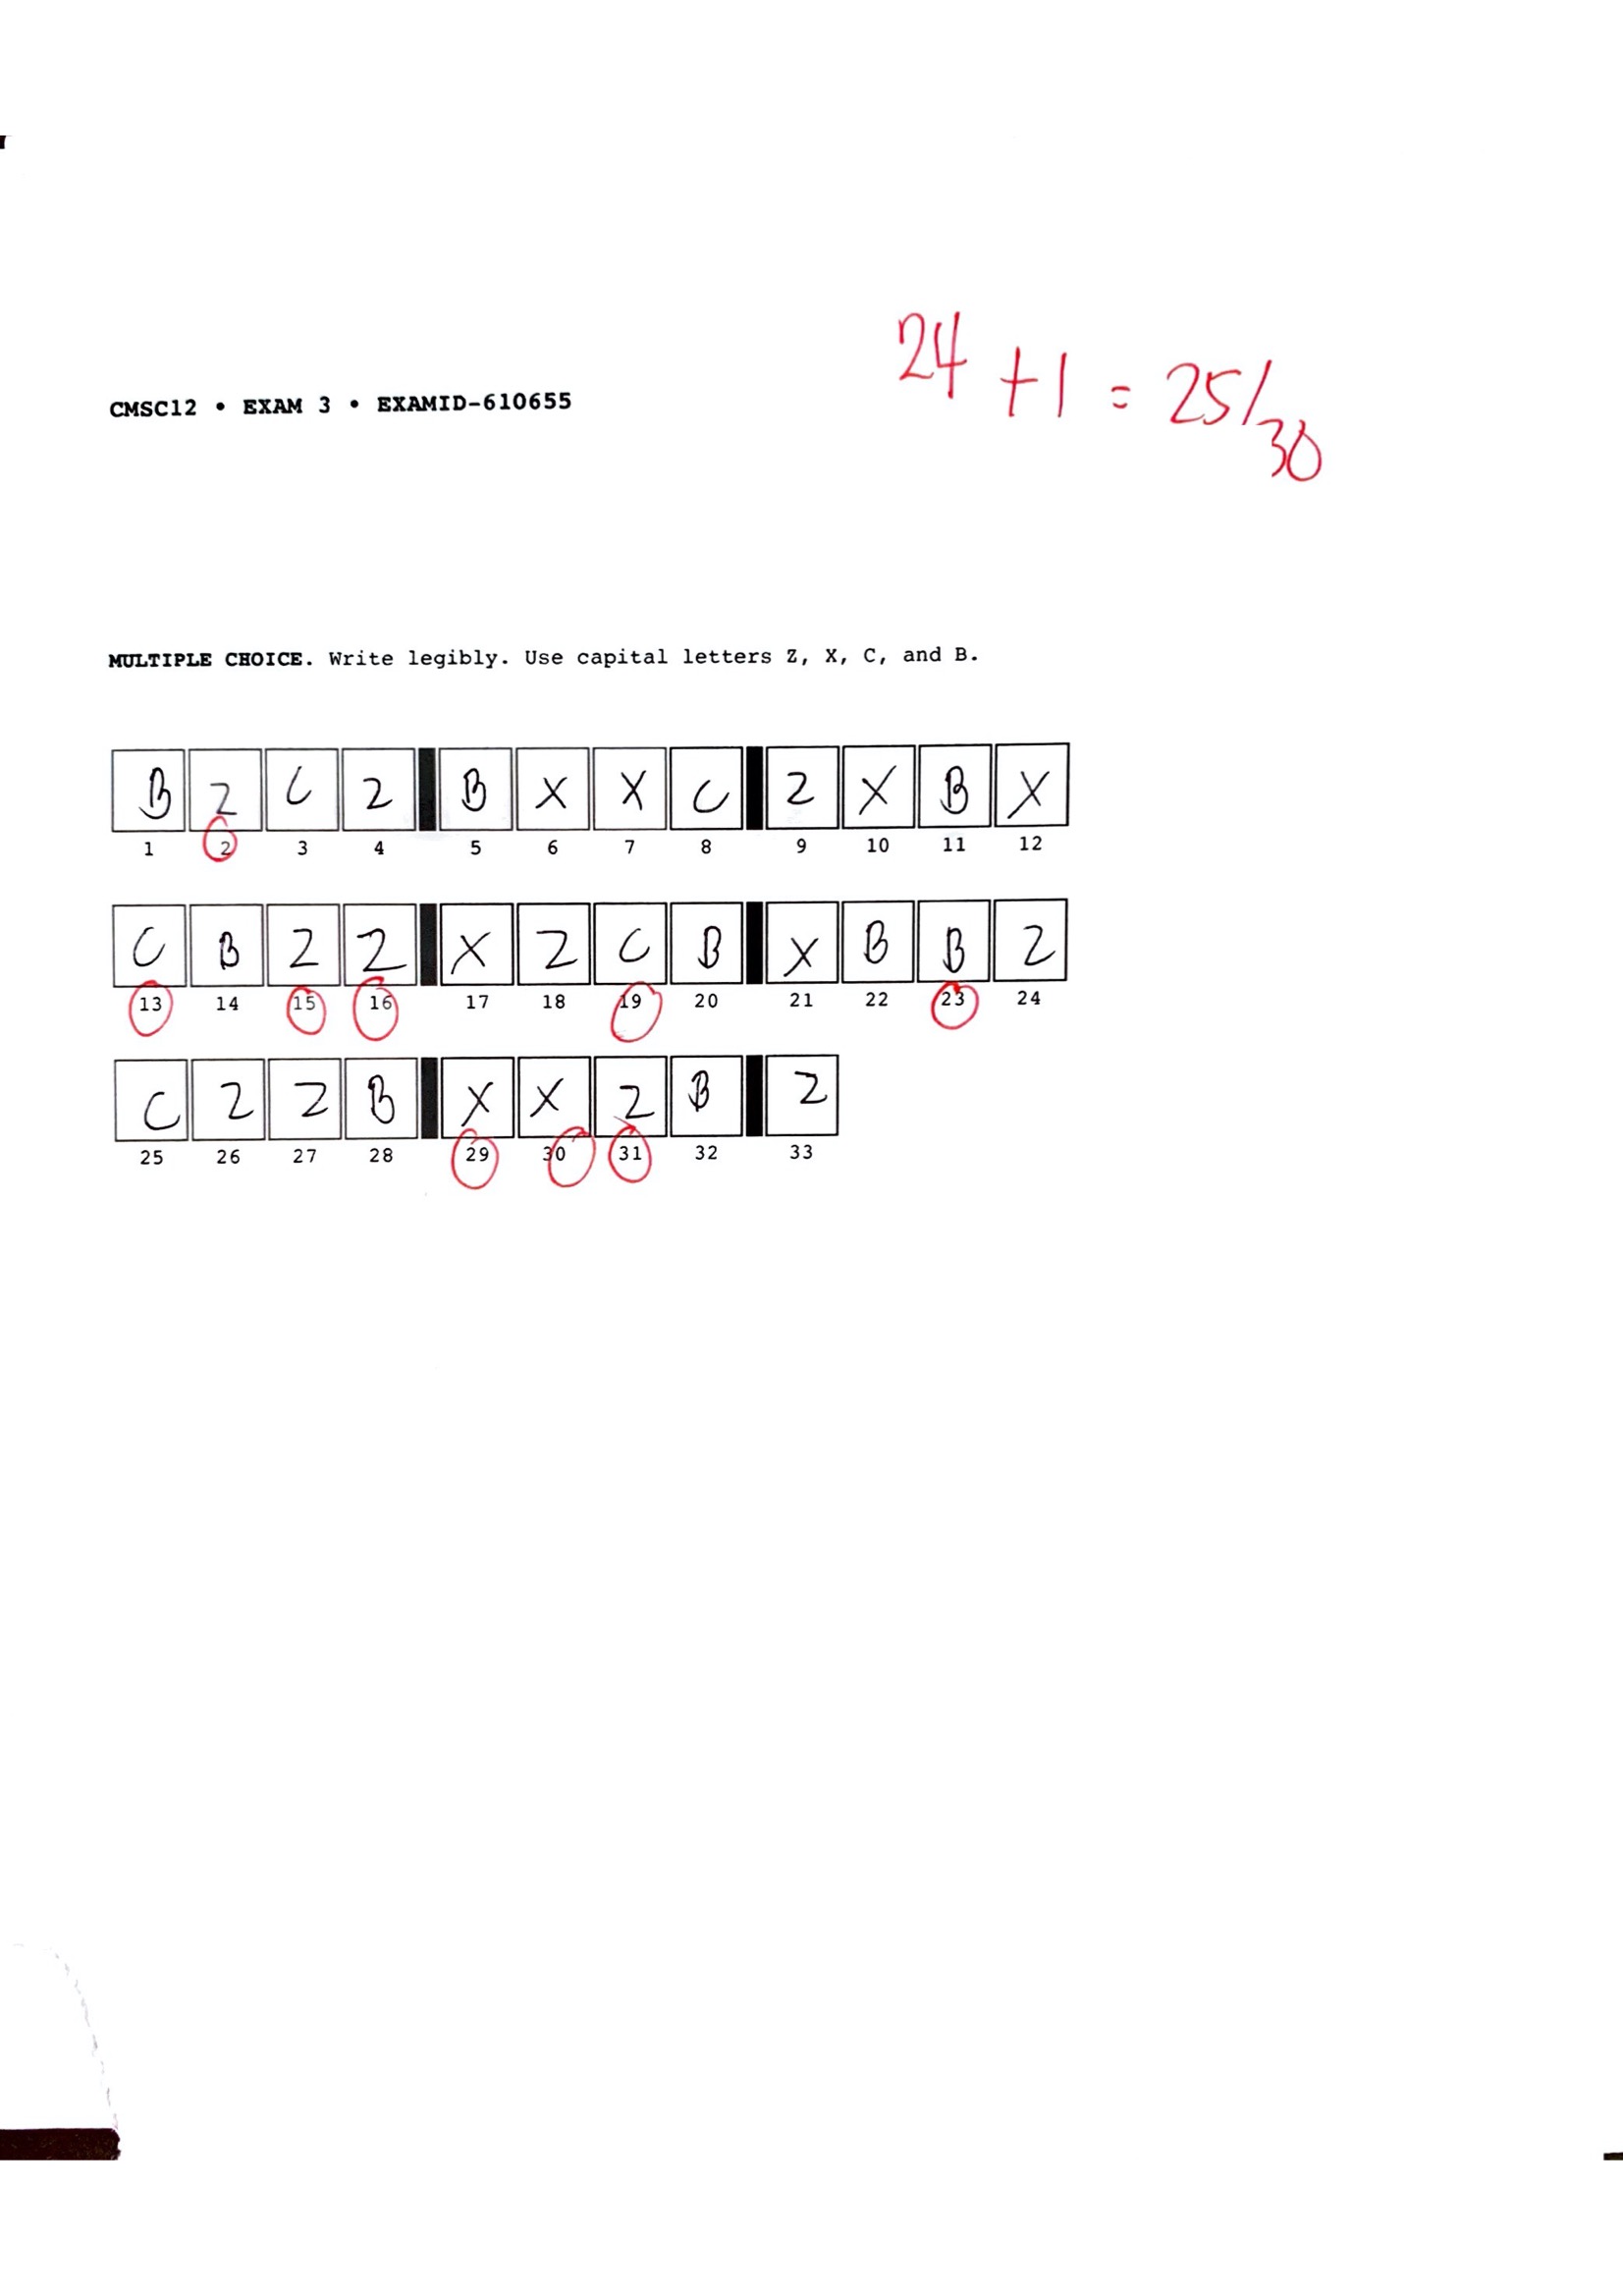 24 + 1 = 25/30
CMSC12 • EXAM 3 • EXAMID-610655
MULTIPLE CHOICE. Write legibly. Use capital letters Z, X, C, and B.
B Z C Z B X X C Z X B X
1 2 3 4 5 6 7 8 9 10 11 12
C B Z Z X Z C B X B B Z
13 14 15 16 17 18 19 20 21 22 23 24
C Z Z B X X Z B Z
25 26 27 28 29 30 31 32 33